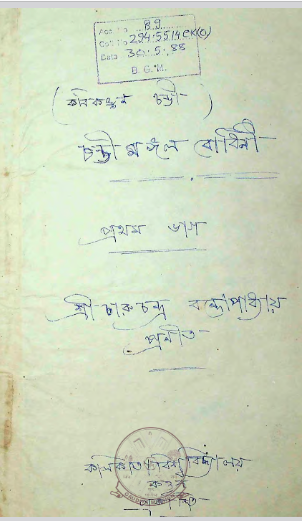 B.G.
Acc. No.
Coll. No. 294.5514 CK(C)
Date 30.5.88
B. G. M.
(কবিকঙ্কণ চণ্ডী)
চণ্ডীমঙ্গল বোধিনী
প্রথম ভাগ
শ্রী চারুচন্দ্র বন্দ্যোপাধ্যায়
প্রণীত
কলিকাতা বিশ্ববিদ্যালয়